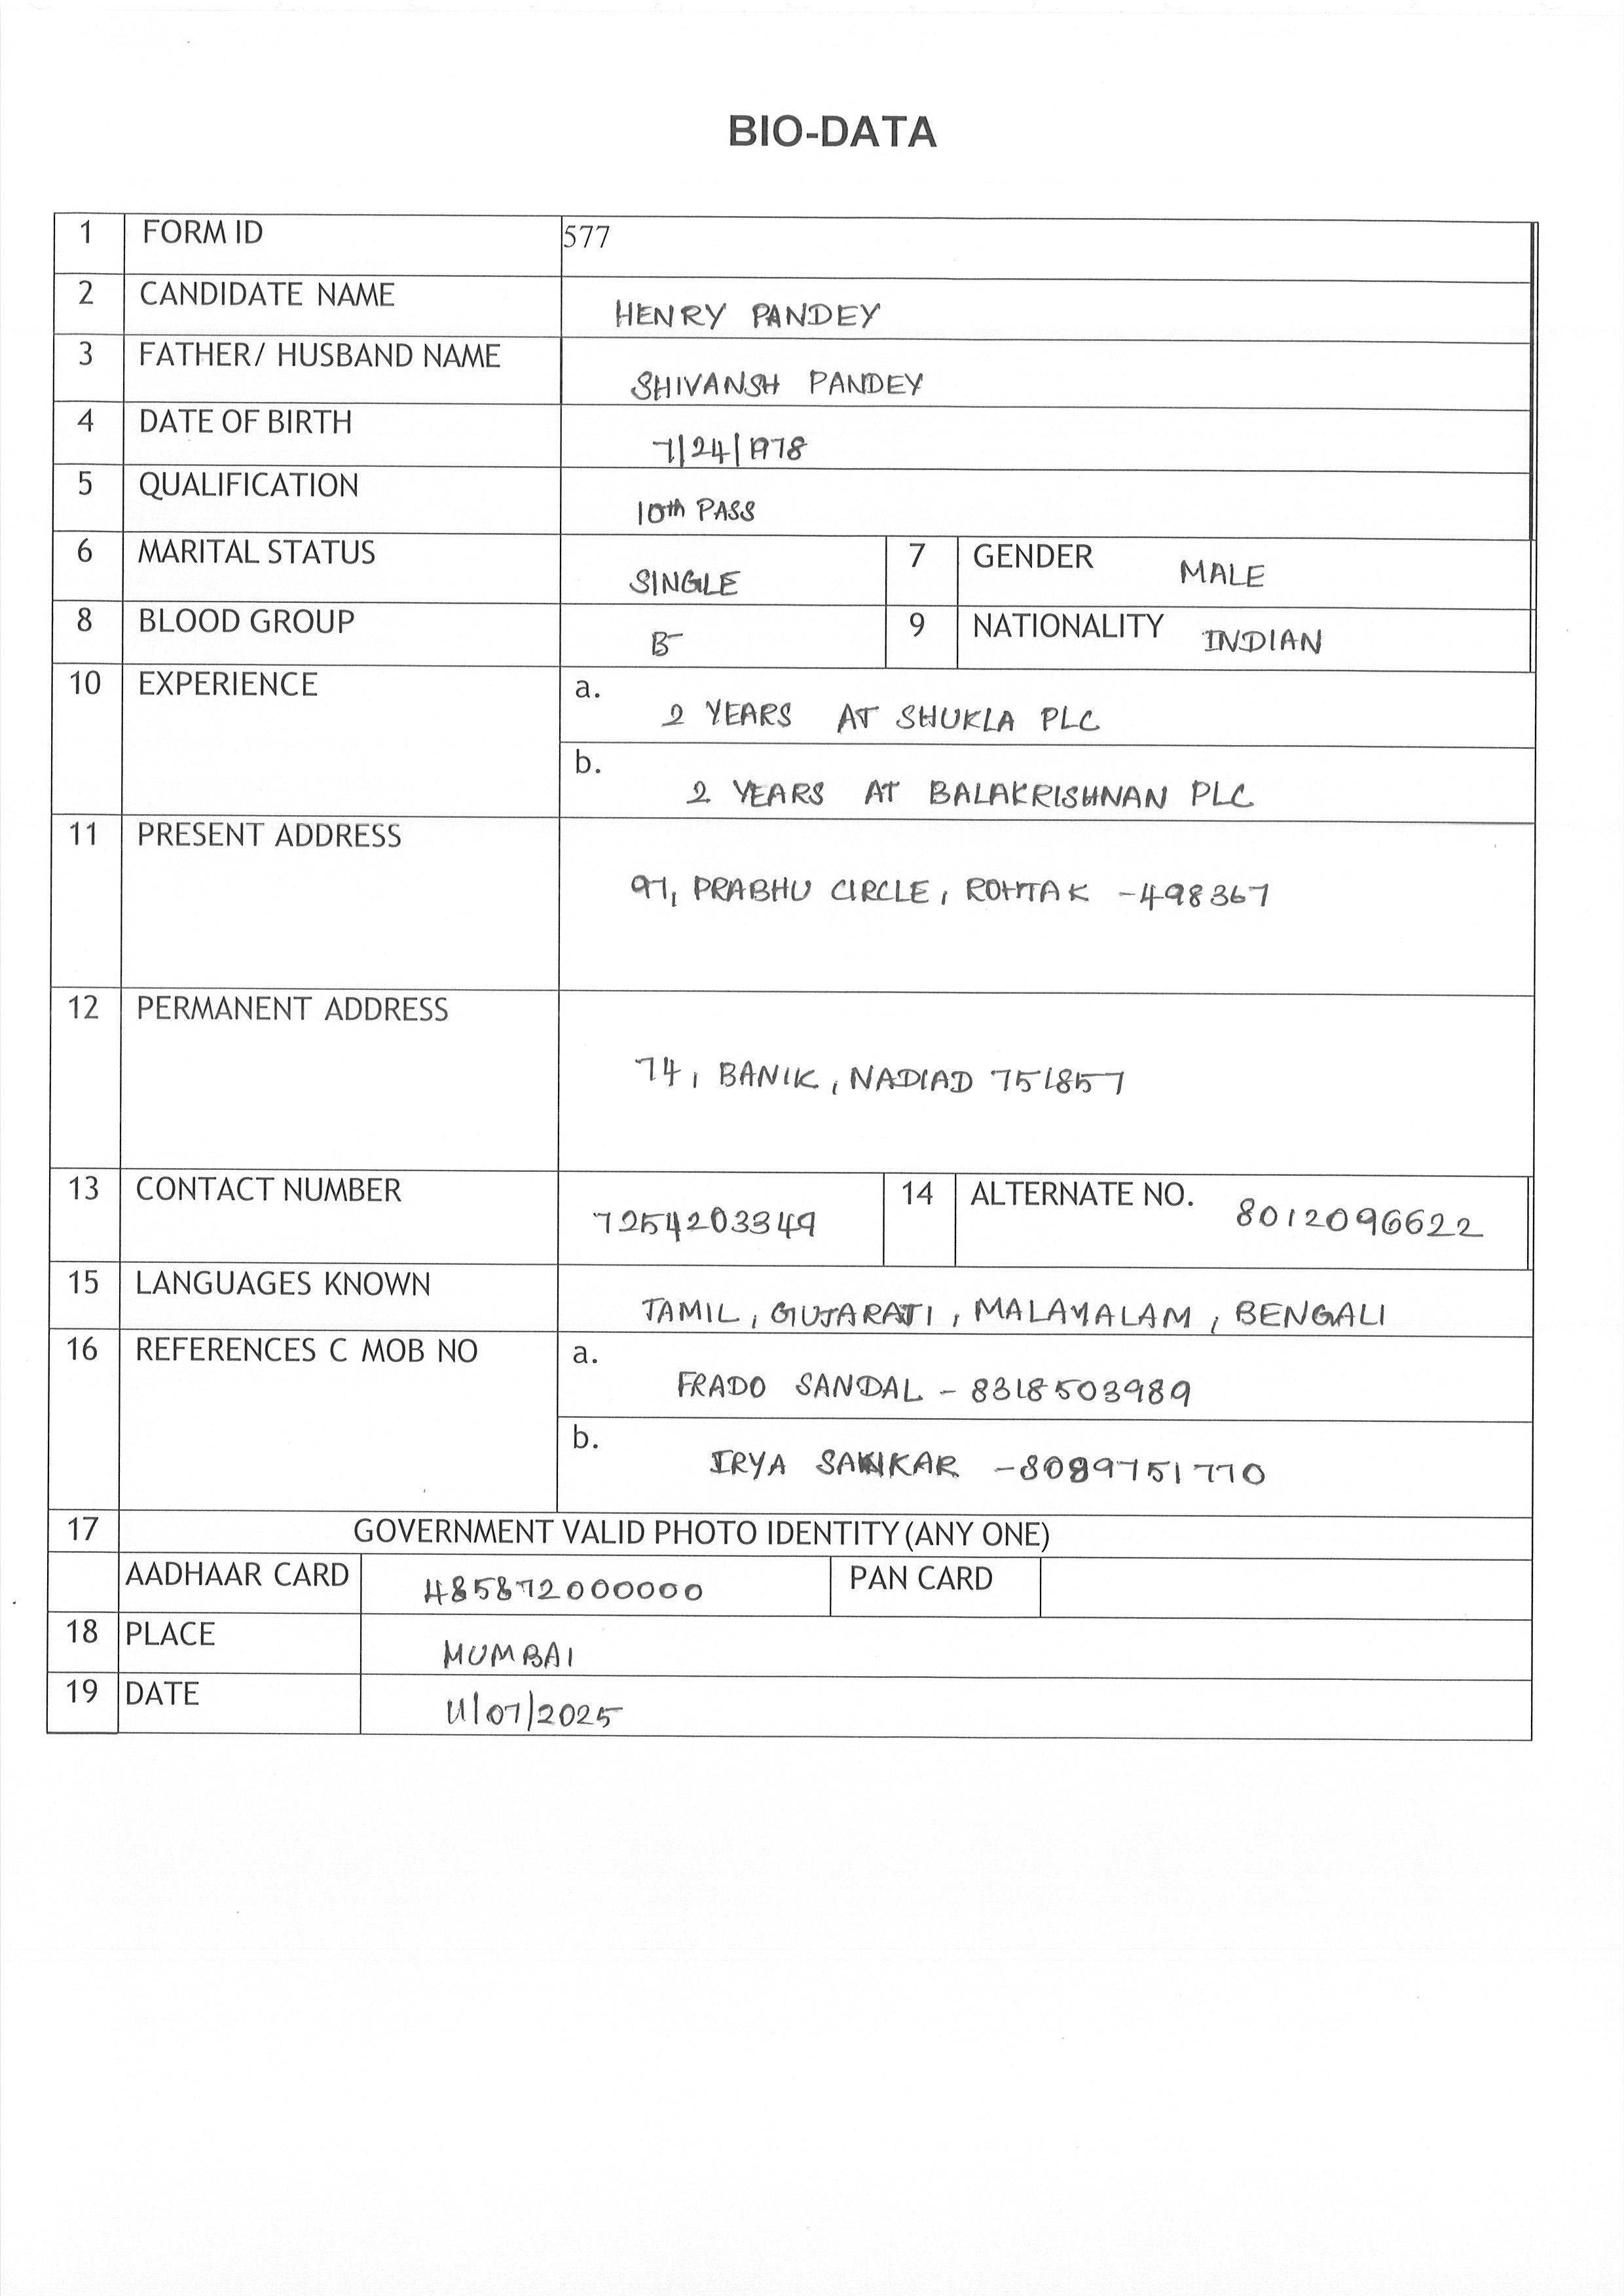 BIO-DATA
1 FORM ID 577
2 CANDIDATE NAME HENRY PANDEY
3 FATHER/ HUSBAND NAME SHIVANSH PANDEY
4 DATE OF BIRTH 7/24/1978
5 QUALIFICATION 10th PASS
6 MARITAL STATUS SINGLE 7 GENDER MALE
8 BLOOD GROUP B- 9 NATIONALITY INDIAN
10 EXPERIENCE a. 2 YEARS AT SHUKLA PLC
b. 2 YEARS AT BALAKRISHNAN PLC
11 PRESENT ADDRESS
97, PRABHU CIRCLE, ROHTAK -498367
12 PERMANENT ADDRESS
74, BANIK, NADIAD 751857
13 CONTACT NUMBER 7254203349 14 ALTERNATE NO. 8012096622
15 LANGUAGES KNOWN TAMIL, GUJARATI, MALAYALAM, BENGALI
16 REFERENCES C MOB NO a. FRADO SANDAL - 8318503989
b. IRYA -8089751770
17 GOVERNMENT VALID PHOTO IDENTITY (ANY ONE)
AADHAAR CARD 485872000000 PAN CARD
18 PLACE MUMBAI
19 DATE 11/07/2025